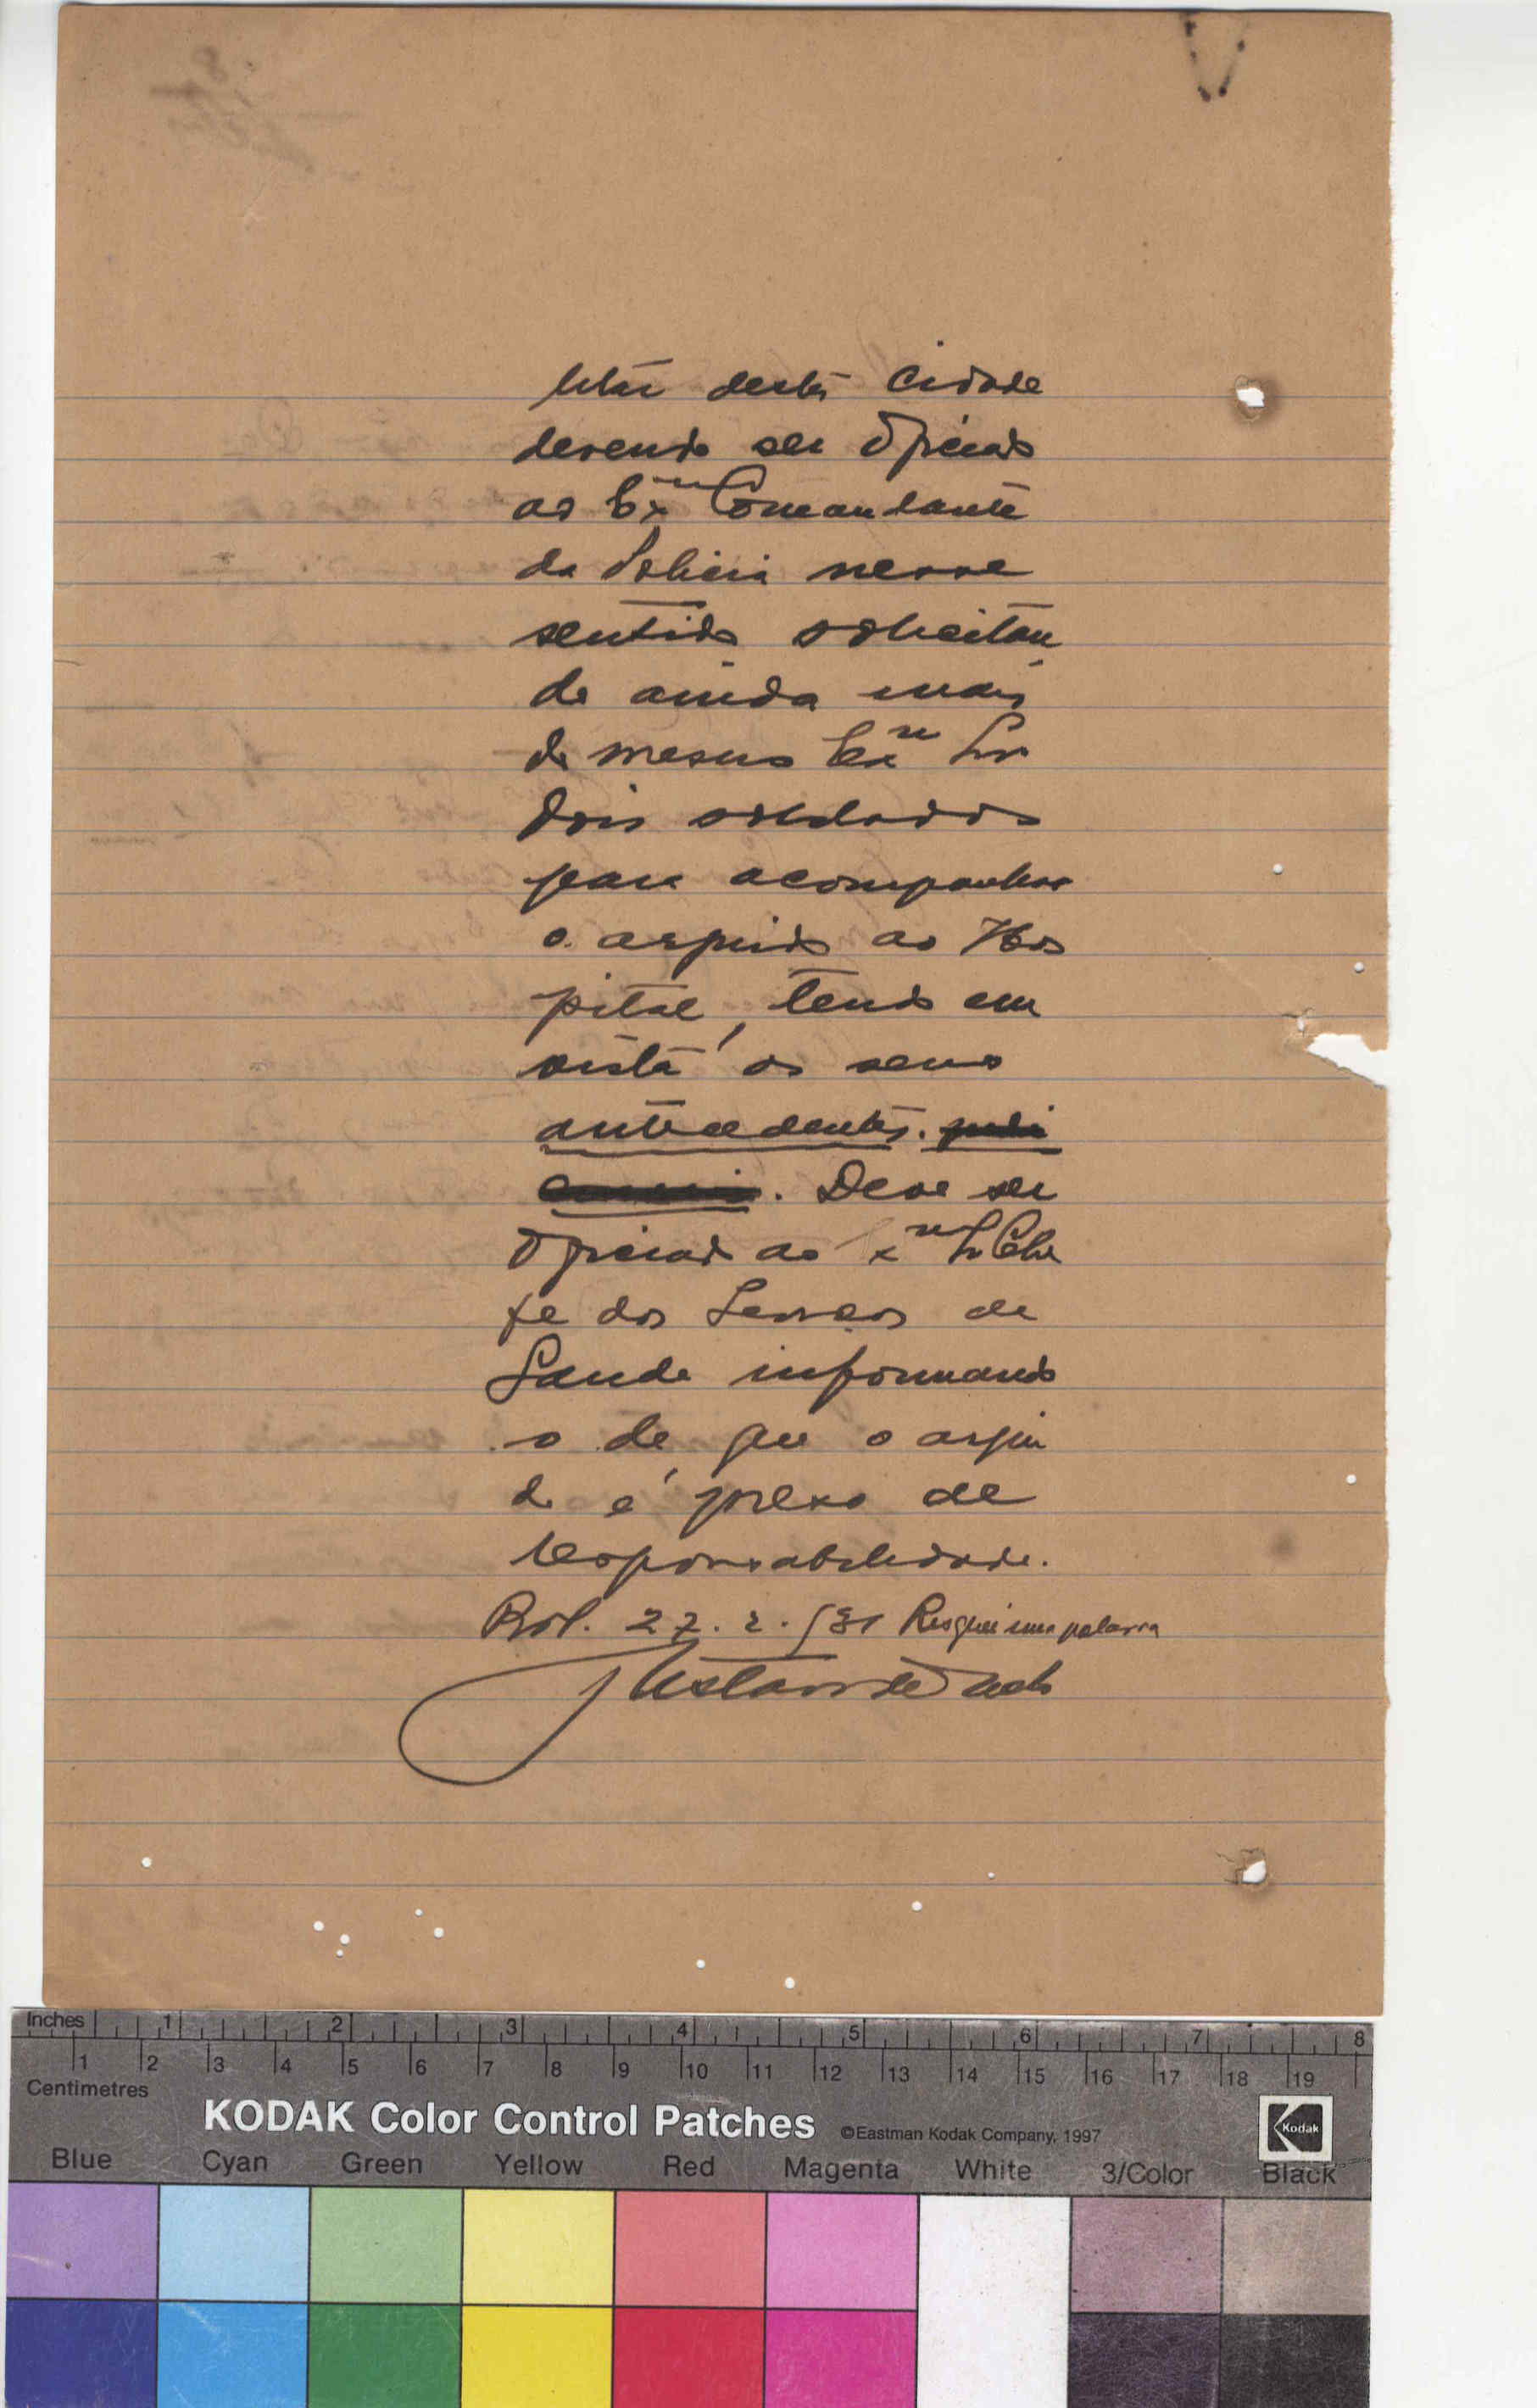 litar desta cidade
devendo ser oficiado
ao Exmo Comandante
da Policia nesse
sentido solicitan
do ainda mais
do mesmo Exmo Snr
dois soldados
para acompanhar
o arguido ao Hos
pital, tendo em
vista os seus
antecedentes.
. Deve ser
oficiado ao Exmo Sr Che
fe dos Serviços de
Saude informando
o de que o argui
do é preso de
responsabilidade.
27. 2. 931 Risquei uma palavra
Inches 1 2 3 4 5 6 7 8
1 2 3 4 5 6 7 8 9 10 11 12 13 14 15 16 17 18 19
Centimetres
KODAK Color Control Patches ©Eastman Kodak Company, 1997 Kodak
Blue Cyan Green Yellow Red Magenta White 3/Color Black